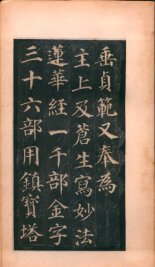 垂貞範又奉為
主上及蒼生寫妙法
蓮華經一千部金字
三十六部用鎮寶塔